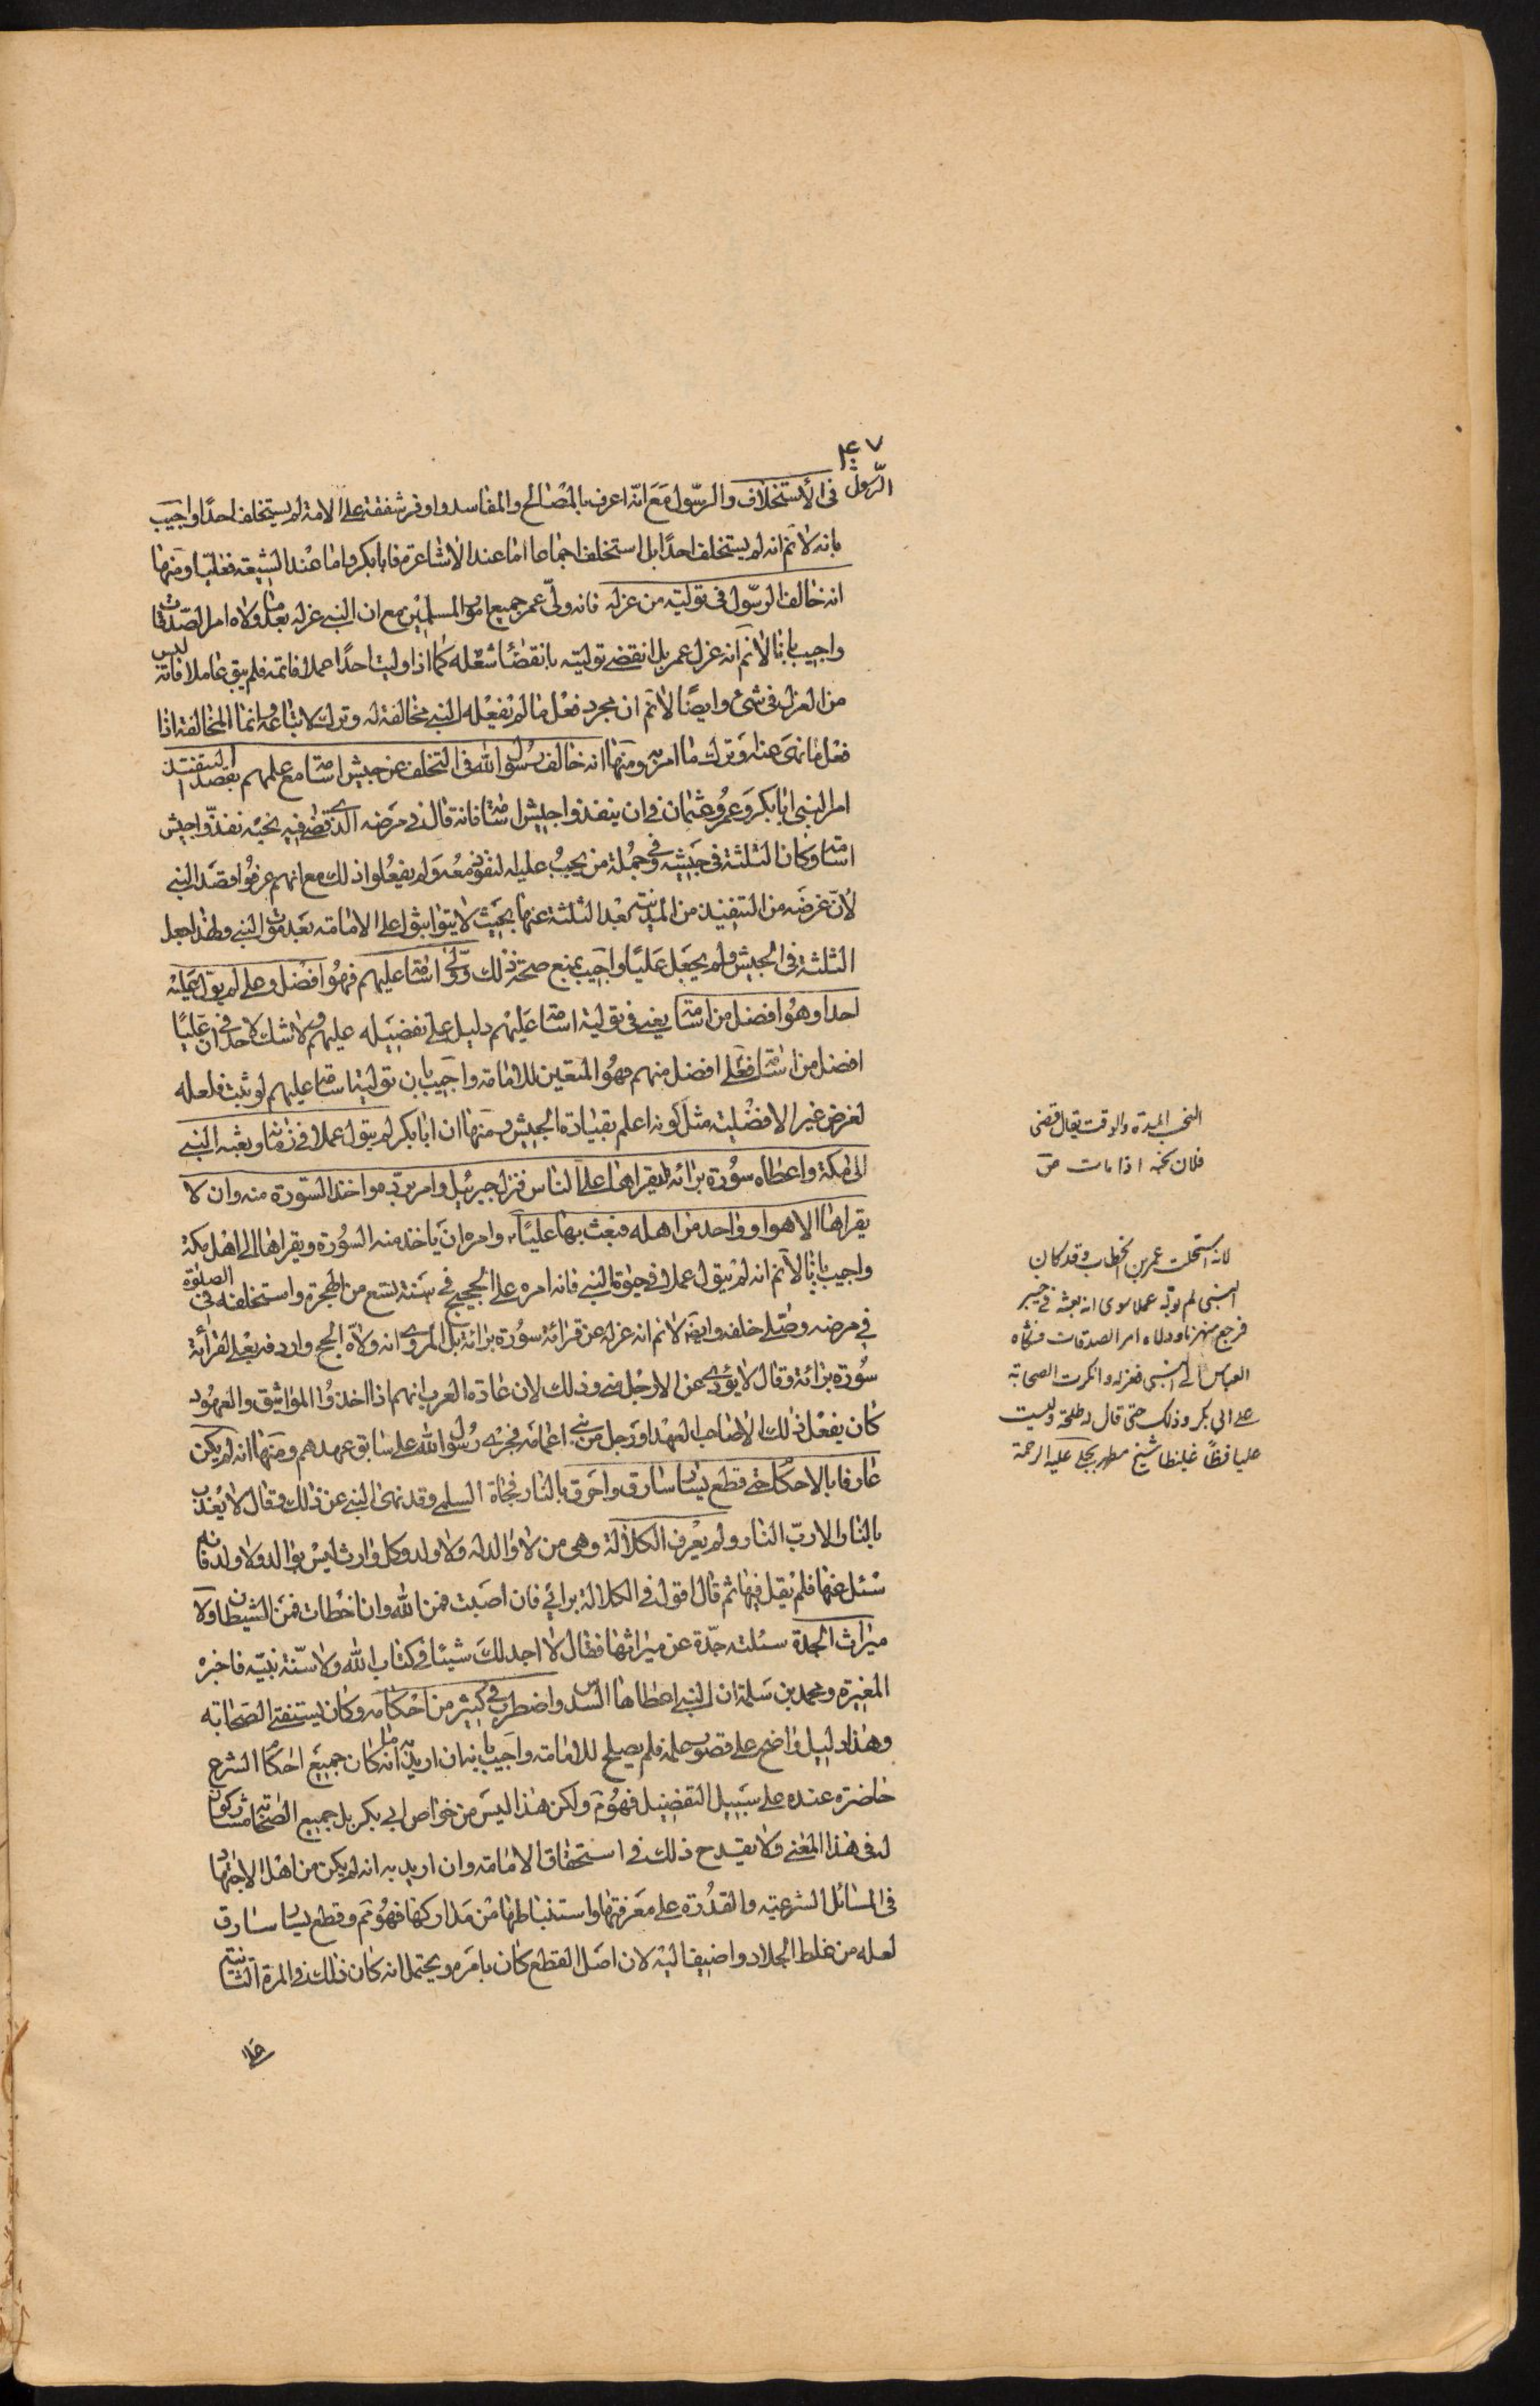 ٤٧
الرسول فى الاستخلاف والرسول مع انه اعرف بالمصالح والمفاسد واوفر شفقة على الامة لم يستخلف احدا واجيب
بانه لانم انه لم يستخلف احدا بل استخلف اجماعا اما عند الاشاعرة فابابكر واما عند الشيعة فعليا ومنها
انه خالف الرسول فى توليته من عزله فانه ولى عمر جميع امور المسلمين مع ان النبى عزله بعد ما ولاه امر الصدقات
واجيب بانا لانم انه عزل عمر بل انقضى توليته بانقضاء شغله كما اذا وليت احدا عملا فاتمه فلم يبق عاملا فانه ليس
من العزل فى شئ وايضا لانم ان مجرد فعل ما لم يفعله النبى مخالفة له وترك لاتباعه وانما المخالفة اذا
فعل ما نهى عنه وترك ما امر به ومنها انه خالف رسول الله فى التخلف عن جيش اسامة مع علمهم بقصد التنفيذ
امر النبى ابابكر وعمر وعثمان فى ان ينفذوا جيش اسامة فانه قال فى مرضه الذى قضى فيه نحبه نفذوا جيش
اسامة وكان الثلثة فى جيشه وفى جملة من يجب عليه النفوذ معه ولم يفعلوا ذلك مع انهم عرفوا قصد النبى
لان غرضه من التنفيذ من المدينة بعد الثلثة عنها بحيث لا يتواثبوا على الامامة بعد موت النبى ولهذا جعل
الثلثة فى الجيش ولم يجعل عليا واجيب بمنع صحة ذلك وولى اسامة عليهم فهو افضل وعلى لم يول عليه
احدا وهو افضل من اسامة يعنى فى تولية اسامة عليهم دليل على تفضيله عليهم ولا شك لاحد فى ان عليا
افضل من اسامة فعلى افضل منهم فهو المتعين للامامة واجيب بان تولية اسامة عليهم لو ثبت فلعله
لغرض غير الافضلية مثل كونه اعلم بقيادة الجيش ومنها ان ابابكر لم يتول عملا فى زمانه وبعثه النبى
الى مكة واعطاه سورة برائة ليقراها على الناس فنزل جبرئيل وامر برده واخذ السورة منه وان لا
يقراها الا هو او واحد من اهله فبعث بها عليا وامره ان ياخذ منه السورة ويقراها الى اهل مكة
واجيب بانا لانم انه لم يتول عملا فى حيوة النبى فانه امره على الحجيج فى سنة تسع من الهجرة واستخلفه فى الصلوة
فى مرضه وصلى خلفه وايضا لانم انه عزله عن قرائة سورة برائة بل المروى انه ولاه الحج واردفه بعلى لقرائة
سورة برائة وقال لا يؤدى عنى الا رجل منى وذلك لان عادة العرب انهم اذا اخذوا المواثيق والعهود
كان يفعل ذلك الا صاحب العهد او رجل من بنى اعمامه فجرى رسول الله على سابق عهدهم ومنها انه لم يكن
عارفا بالاحكام حتى قطع يسار سارق واحرق بالنار فجاة السلمى وقد نهى النبى عن ذلك وقال لا يعذب
بالنار الا رب النار ولم يعرف الكلالة وهى من لا والد له ولا ولد وكل وارث ليس بوالد ولا ولد فانه
سئل عنها فلم يقل فيها ثم قال اقول فى الكلالة برائى فان اصبت فمن الله وان اخطات فمن الشيطان ولا
ميراث الجدة سئلته جدة عن ميراثها فقال لا اجد لك شيئا فى كتاب الله ولا سنة نبيه فاخبره
المغيرة ومحمد بن سلمة ان النبى اعطاها السدس واضطرب فى كثير من احكامه وكان يستفتى الصحابة
وهذا دليل واضح على قصور علمه فلم يصلح للامامة واجيب بانه ان اريد به انه ما كان جميع احكام الشرع
حاضرة عنده على سبيل التفصيل فهو م ولكن هذا ليس من خواص ابى بكر بل جميع الصحابة مشاركون
له فى هذا المعنى ولا يقدح ذلك فى استحقاق الامامة وان اريد به انه لم يكن من اهل الاجتهاد
فى المسائل الشرعية والقدرة على معرفتها واستنباطها من مداركها فهو مم وقطع يسار سارق
لعله من غلط الجلاد واضيف اليه لان اصل القطع كان بامره ويحتمل انه كان ذلك فى المرة الثانية
النحب المدة والوقت يقال قضى
فلان نحبه اذا مات ص
لانه استخلف عمر بن الخطاب وقد كان
النبى لم يوله عملا سوى انه بعثه فى خيبر
فرجع منهزما وولاه امر الصدقات فشكاه
العباس الى النبى فعزله وانكرت الصحابة
على ابى بكر وذلك حتى قال له طلحة وليت
علينا فظا غليظا شيخ مطهر حلى عليه الرحمة